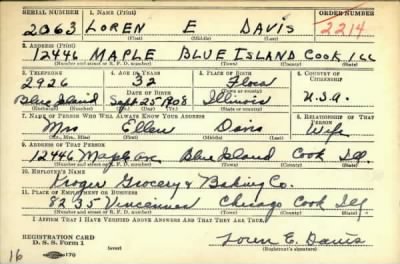 SERIAL NUMBER 1. NAME (Print) ORDER NUMBER
2063 LOREN E DAVIS 2214
(First) (Middle) (Last)
2. ADDRESS (Print)
12446 MAPLE BLUE ISLAND COOK ILL
(Number and street or R. F. D. number) (Town) (County) (State)
3. TELEPHONE 4. AGE IN YEARS 5. PLACE OF BIRTH 6. COUNTRY OF CITIZENSHIP
2926 32 Flora
DATE OF BIRTH (Town or county)
Blue Island Sept 25 1908 Illinois U.S.A.
(Exchange) (Number) (Mo.) (Day) (Yr.) (State or country)
7. NAME OF PERSON WHO WILL ALWAYS KNOW YOUR ADDRESS 8. RELATIONSHIP OF THAT PERSON
Mrs Ellen Davis Wife
(Mr., Mrs., Miss) (First) (Middle) (Last)
9. ADDRESS OF THAT PERSON
12446 Maple Blue Island Cook Ill.
(Number and street or R. F. D. number) (Town) (County) (State)
10. EMPLOYER'S NAME
Kroger Grocery & Baking Co.
11. PLACE OF EMPLOYMENT OR BUSINESS
8235 Vincennes Chicago Cook Ill
(Number and street or R. F. D. number) (Town) (County) (State)
I AFFIRM THAT I HAVE VERIFIED ABOVE ANSWERS AND THAT THEY ARE TRUE.
REGISTRATION CARD
D. S. S. Form 1 (over) Loren E. Davis
16 (Registrant's signature)